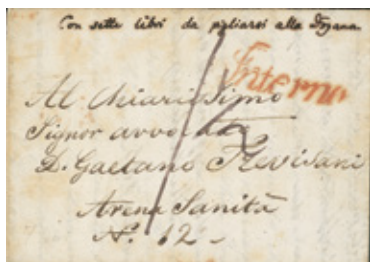 Con sette libri da pigliarsi alla Dogana
Interno
Al Chiarissimo
Signor avvocato
D. Gaetano Trevisani
Arena Sanità
N.º 12